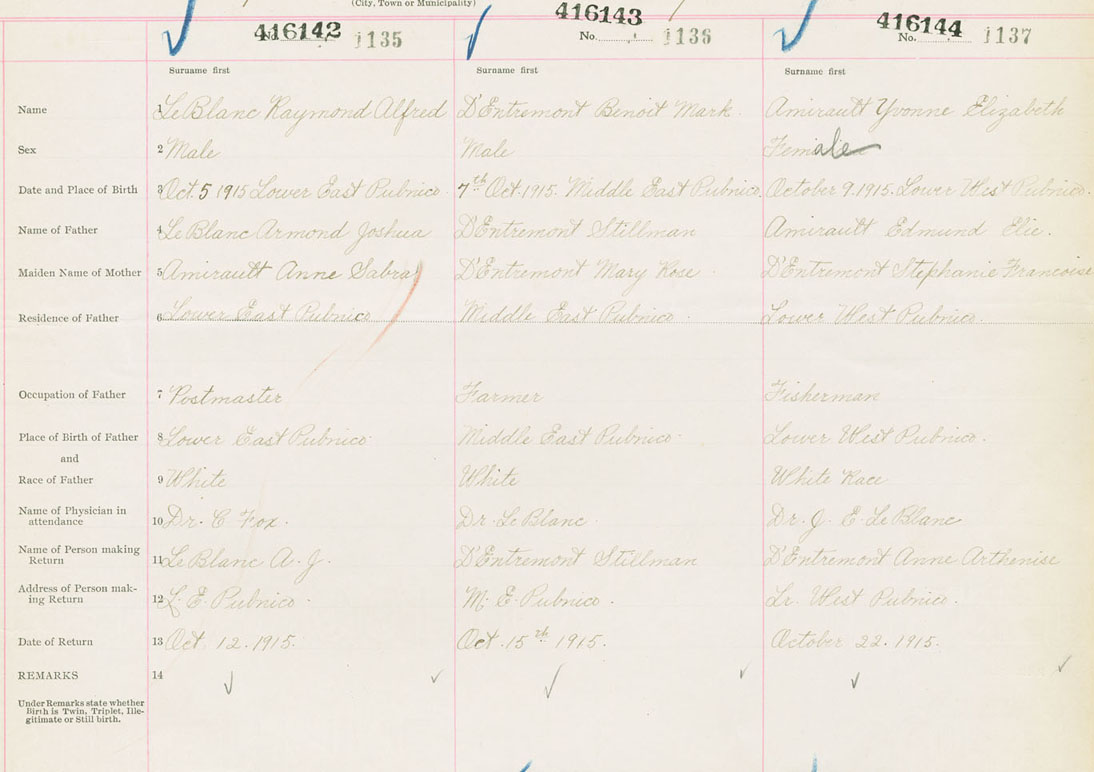 (City, Town or Municipality)
416142 416143 416144
No. 1135 No. 1136 No. 1137
Surname first Surname first Surname first
Name 1 LeBlanc Raymond Alfred D'Entremont Benoit Mark. Amirault Yvonne Elizabeth
Sex 2 Male Male Female
Date and Place of Birth 3 Oct. 5 1915 Lower East Pubnico. 7th Oct. 1915. Middle East Pubnico. October 9. 1915. Lower West Pubnico.
Name of Father 4 LeBlanc Armond Joshua D'Entremont Stillman Amirault Edmund Elie.
Maiden Name of Mother 5 Amirault Anne Sabra D'Entremont Mary Rose. D'Entremont Stephanie Francoise
Residence of Father 6 Lower East Pubnico Middle East Pubnico. Lower West Pubnico.
Occupation of Father 7 Postmaster Farmer Fisherman
Place of Birth of Father 8 Lower East Pubnico. Middle East Pubnico. Lower West Pubnico.
and
Race of Father 9 White White White Race
Name of Physician in
attendance 10 Dr. C Fox. Dr. LeBlanc. Dr. J. E. LeBlanc
Name of Person making
Return 11 LeBlanc A. J. D'Entremont Stillman D'Entremont Anne Arthenise
Address of Person mak-
ing Return 12 L. E. Pubnico. M. E. Pubnico. Lr. West Pubnico.
Date of Return 13 Oct. 12. 1915. Oct. 15th 1915. October 22. 1915.
REMARKS 14
Under Remarks state whether
Birth is Twin, Triplet, Ille-
gitimate or Still birth.